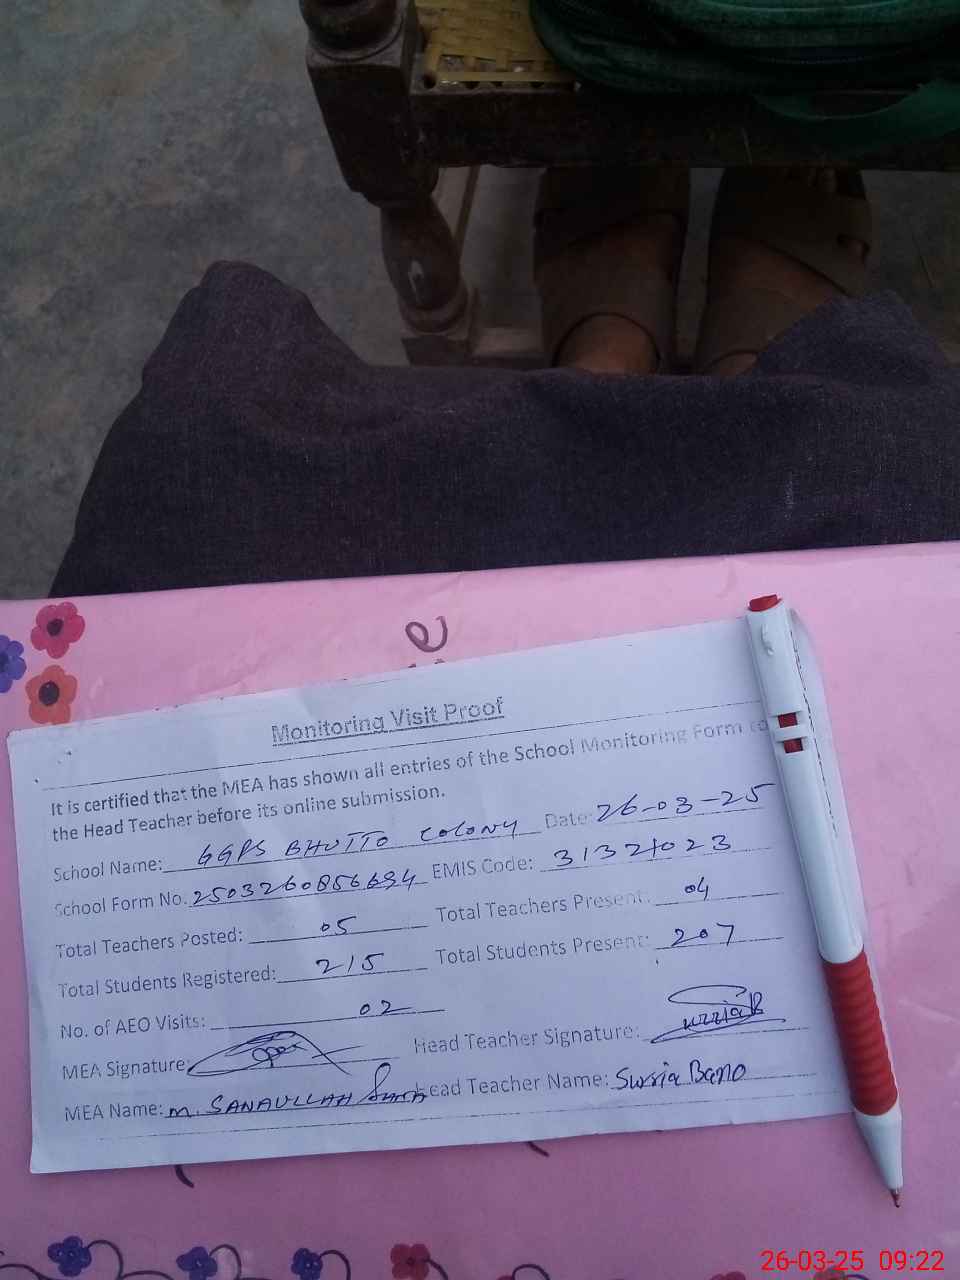 Monitoring Visit Proof
It is certified that the MEA has shown all entries of the School Monitoring Form to
the Head Teacher before its online submission.
School Name: GGPS BHUTTO COLONY Date: 26-03-25
School Form No. 2503260856694 EMIS Code: 31321023
Total Teachers Posted: 05 Total Teachers Present: 04
Total Students Registered: 215 Total Students Present: 207
No. of AEO Visits: 02
MEA Signature: Head Teacher Signature:
MEA Name: M. SANAULLAH Head Teacher Name: Surria Bano
26-03-25 09:22